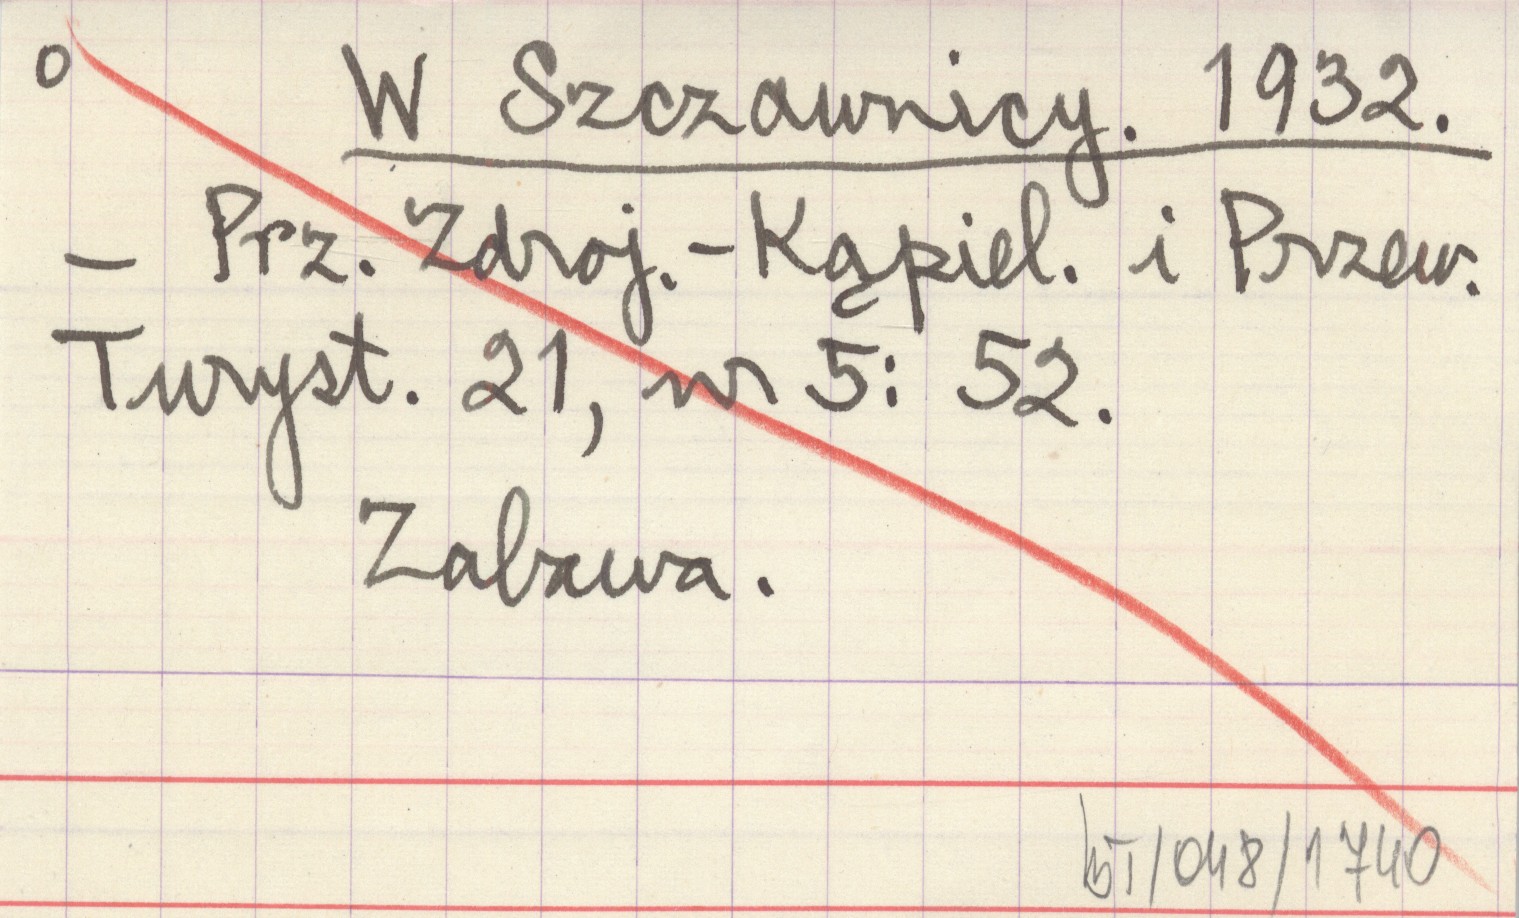 o W Szczawnicy. 1932.
– Prz. Zdroj.-Kąpiel. i Przew.
Turyst. 21, nr 5: 52.
Zabawa.
/048/1740